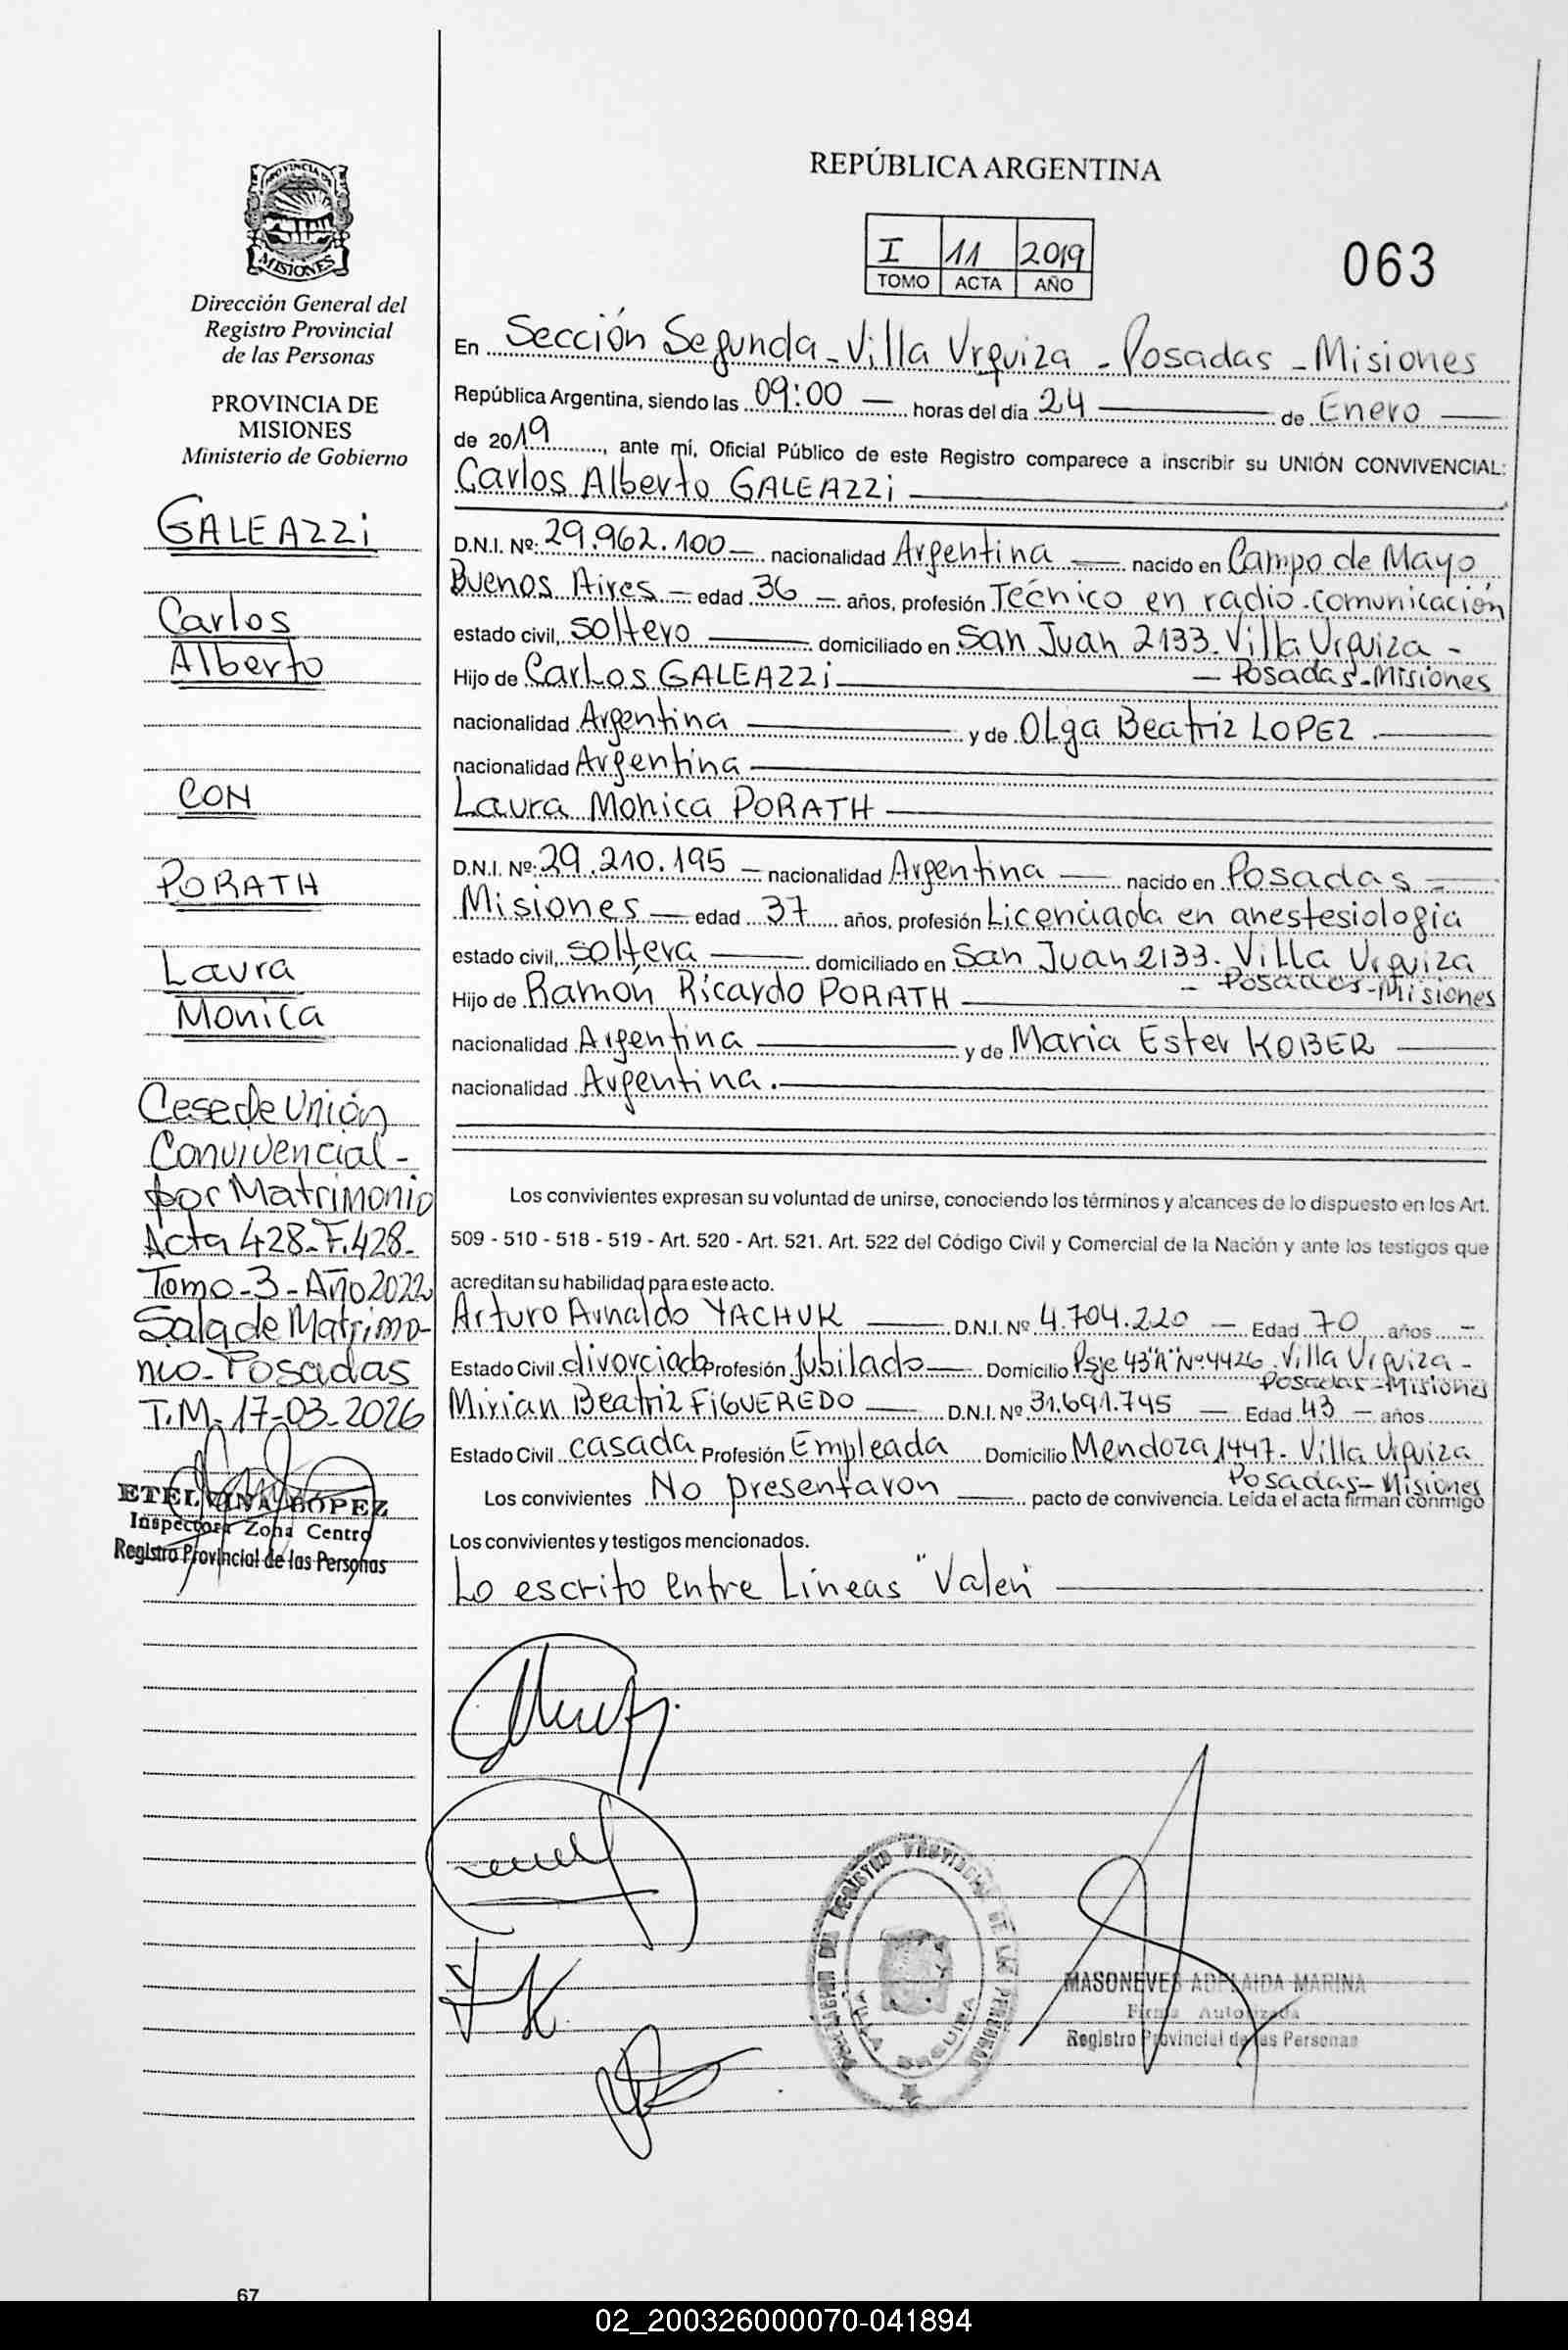 PROVINCIA DE
MISIONES
Dirección General del
Registro Provincial
de las Personas
PROVINCIA DE
MISIONES
Ministerio de Gobierno
GALEAZZi
Carlos
Alberto
CON
PORATH
Laura
Monica
Cese de Unión
Convivencial -
por Matrimonio
Acta 428-F.428-
Tomo-3-Año 2022
Sala de Matrimo-
nio-Posadas
T.M-17-03-2026
ETELVINA LOPEZ
Inspectora Zona Centro
Registro Provincial de las Personas
67
REPÚBLICA ARGENTINA
I 11 2019
TOMO ACTA AÑO
063
En Sección Segunda - Villa Urquiza - Posadas - Misiones
República Argentina, siendo las 09:00 — horas del día 24 — de Enero —
de 2019, ante mí, Oficial Público de este Registro comparece a inscribir su UNIÓN CONVIVENCIAL:
Carlos Alberto GALEAZZi —
D.N.I. Nº: 29.962.100 — nacionalidad Argentina — nacido en Campo de Mayo,
Buenos Aires — edad 36 — años, profesión Técnico en radio comunicación
estado civil, soltero — domiciliado en San Juan 2133. Villa Urquiza -
— Posadas-Misiones
Hijo de Carlos GALEAZZi —
nacionalidad Argentina — y de Olga Beatriz LOPEZ. —
nacionalidad Argentina —
Laura Monica PORATH —
D.N.I. Nº: 29.210.195 — nacionalidad Argentina — nacido en Posadas —
Misiones — edad 37 años, profesión Licenciada en anestesiologia
estado civil, soltera — domiciliado en San Juan 2133. Villa Urquiza
- Posadas-Misiones
Hijo de Ramón Ricardo PORATH —
nacionalidad Argentina — y de Maria Ester KOBER —
nacionalidad Argentina. —
Los convivientes expresan su voluntad de unirse, conociendo los términos y alcances de lo dispuesto en los Art.
509 - 510 - 518 - 519 - Art. 520 - Art. 521. Art. 522 del Código Civil y Comercial de la Nación y ante los testigos que
acreditan su habilidad para este acto.
Arturo Arnaldo YACHUK — D.N.I. Nº 4.704.220 — Edad 70 años —
Estado Civil divorciado Profesión Jubilado — Domicilio Psje 43"A" Nº4426. Villa Urquiza -
Posadas-Misiones
Mirian Beatriz FIGUEREDO — D.N.I. Nº 31.691.745 — Edad 43 — años
Estado Civil casada Profesión Empleada Domicilio Mendoza 1447- Villa Urquiza
Posadas-Misiones
Los convivientes No presentaron — pacto de convivencia. Leída el acta firman conmigo
Los convivientes y testigos mencionados.
Lo escrito entre Líneas "Valen —
MASONEVES ADELAIDA MARINA
Firma Autorizada
Registro Provincial de las Personas
02_200326000070-041894